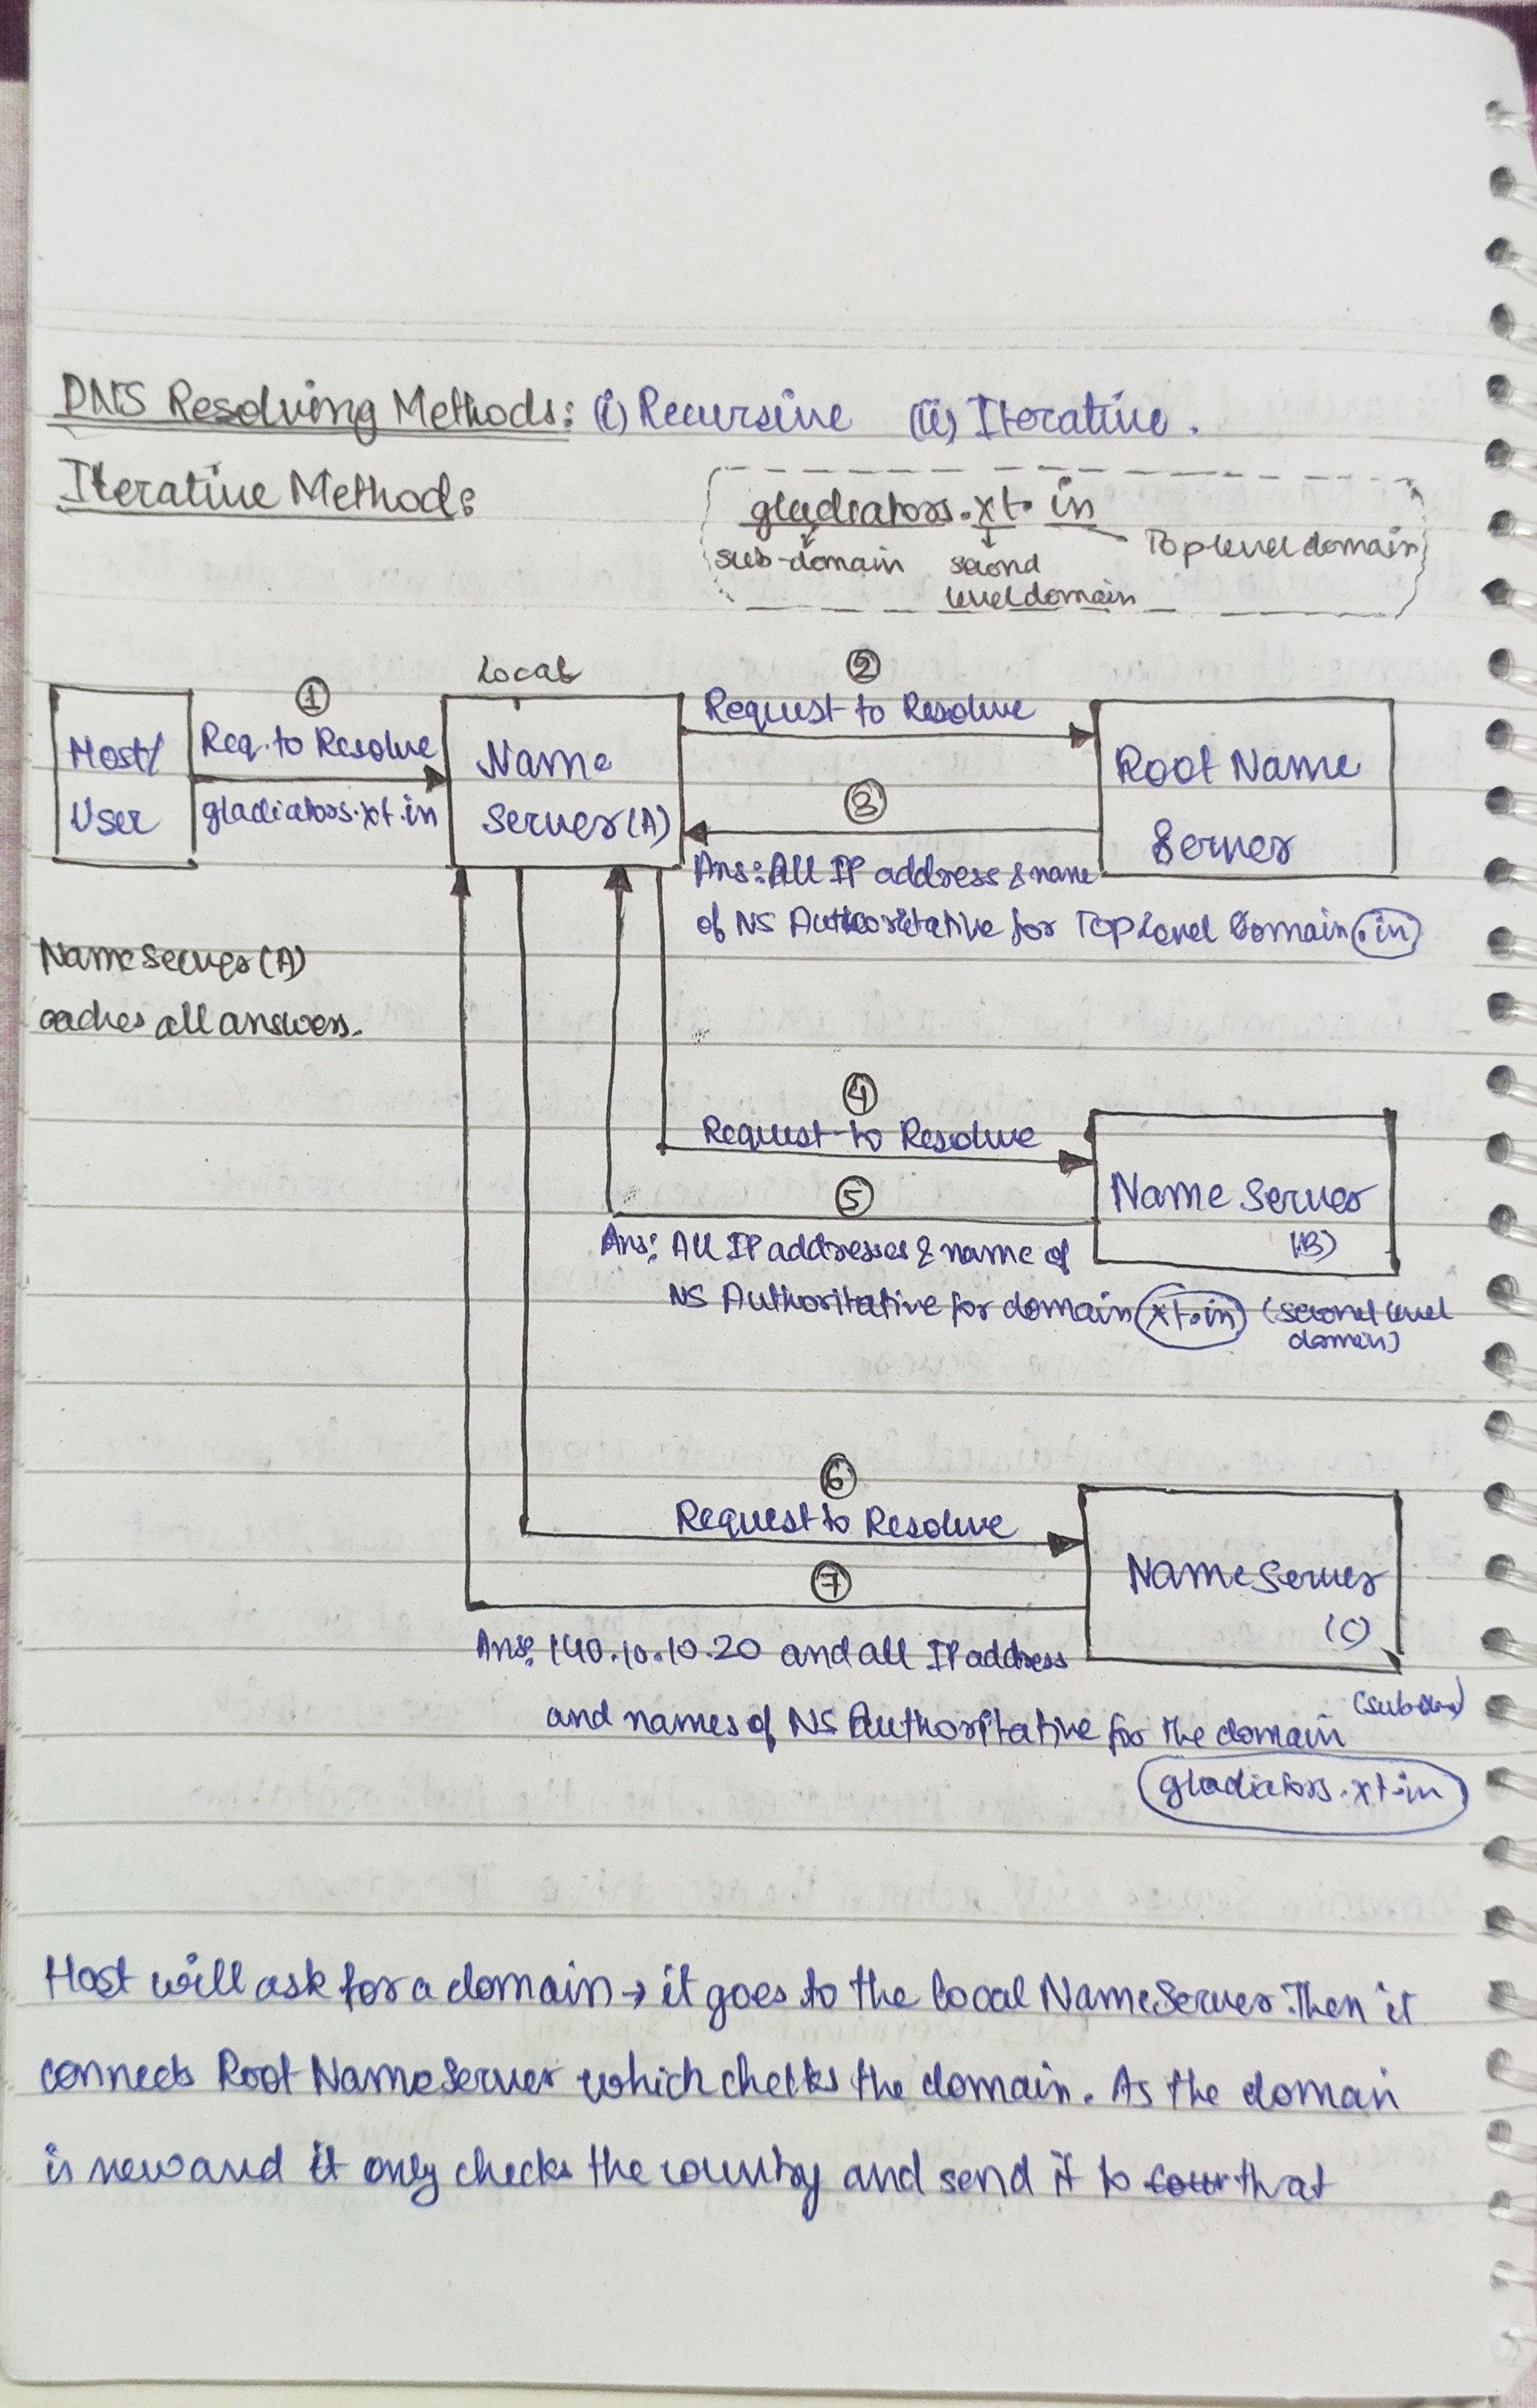 DNS Resolving Methods: (i) Recursive (ii) Iterative.
Iterative Method:
gladiators.xt.in
sub-domain second level domain Top level domain
Local
① Req. to Resolve gladiators.xt.in
Host/
User
Name
Server (A)
② Request to Resolve
Root Name
Server
③
Ans: All IP address & name
of NS Authoritative for Top Level Domain .in
Name Server (A)
caches all answers.
④
Request to Resolve
⑤
Name Server
(B)
Ans: All IP addresses & name of
NS Authoritative for domain xt.in (second level
domain)
⑥
Request to Resolve
⑦
Name Server
(C)
Ans: 140.10.10.20 and all IP address
and names of NS Authoritative for the domain
gladiators.xt.in
Host will ask for a domain → it goes to the local NameServer. Then it
connects Root NameServer which checks the domain. As the doman
is new and it only checks the country and send it to that